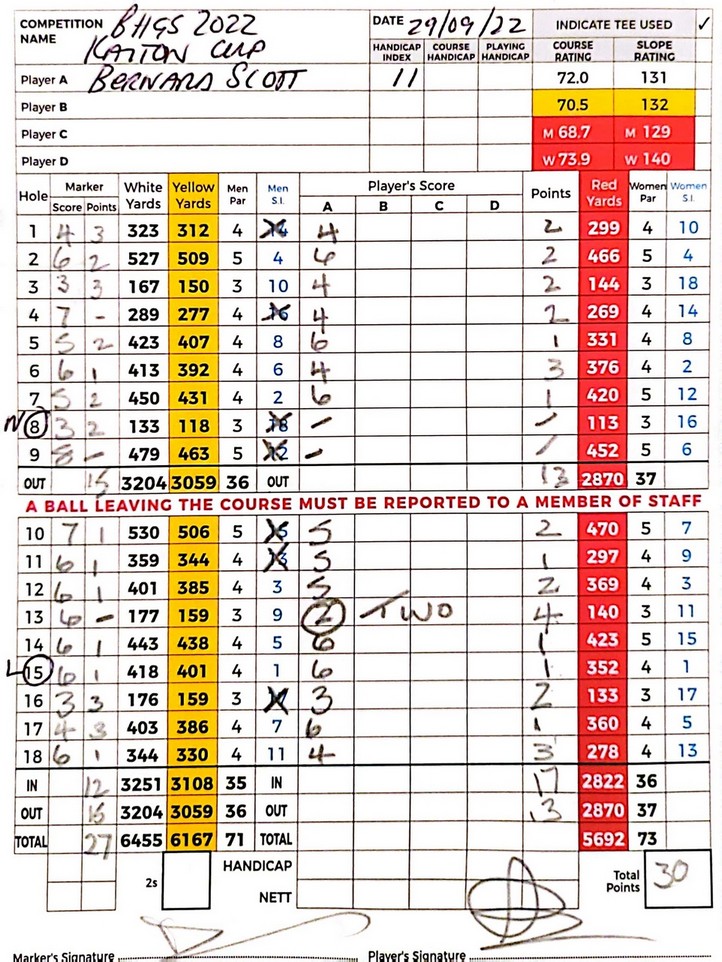 COMPETITION NAME BHGS 2022 DATE 29/09/22 INDICATE TEE USED ✓
KAITON CUP HANDICAP INDEX COURSE HANDICAP PLAYING HANDICAP COURSE RATING SLOPE RATING
Player A BERNARD SCOTT 11 72.0 131
Player B 70.5 132
Player C M 68.7 M 129
Player D W 73.9 W 140
Hole Marker White Yards Yellow Yards Men Par Men S.I. Player's Score Points Red Yards Women Par Women S.I.
Score Points A B C D
1 4 3 323 312 4 14 4 2 299 4 10
2 6 2 527 509 5 4 6 2 466 5 4
3 3 3 167 150 3 10 4 2 144 3 18
4 7 - 289 277 4 16 4 2 269 4 14
5 5 2 423 407 4 8 6 1 331 4 8
6 6 1 413 392 4 6 4 3 376 4 2
7 5 2 450 431 4 2 6 1 420 5 12
N 8 3 2 133 118 3 18 - - 113 3 16
9 8 - 479 463 5 12 - / 452 5 6
OUT 15 3204 3059 36 OUT 13 2870 37
A BALL LEAVING THE COURSE MUST BE REPORTED TO A MEMBER OF STAFF
10 7 1 530 506 5 15 5 2 470 5 7
11 6 1 359 344 4 13 5 1 297 4 9
12 6 1 401 385 4 3 5 2 369 4 3
13 6 - 177 159 3 9 2 TWO 4 140 3 11
14 6 1 443 438 4 5 6 1 423 5 15
L 15 6 1 418 401 4 1 6 1 352 4 1
16 3 3 176 159 3 17 3 2 133 3 17
17 4 3 403 386 4 7 6 1 360 4 5
18 6 1 344 330 4 11 4 3 278 4 13
IN 12 3251 3108 35 IN 17 2822 36
OUT 15 3204 3059 36 OUT 13 2870 37
TOTAL 27 6455 6167 71 TOTAL 5692 73
2s HANDICAP Total Points 30
NETT
Marker's Signature Player's Signature